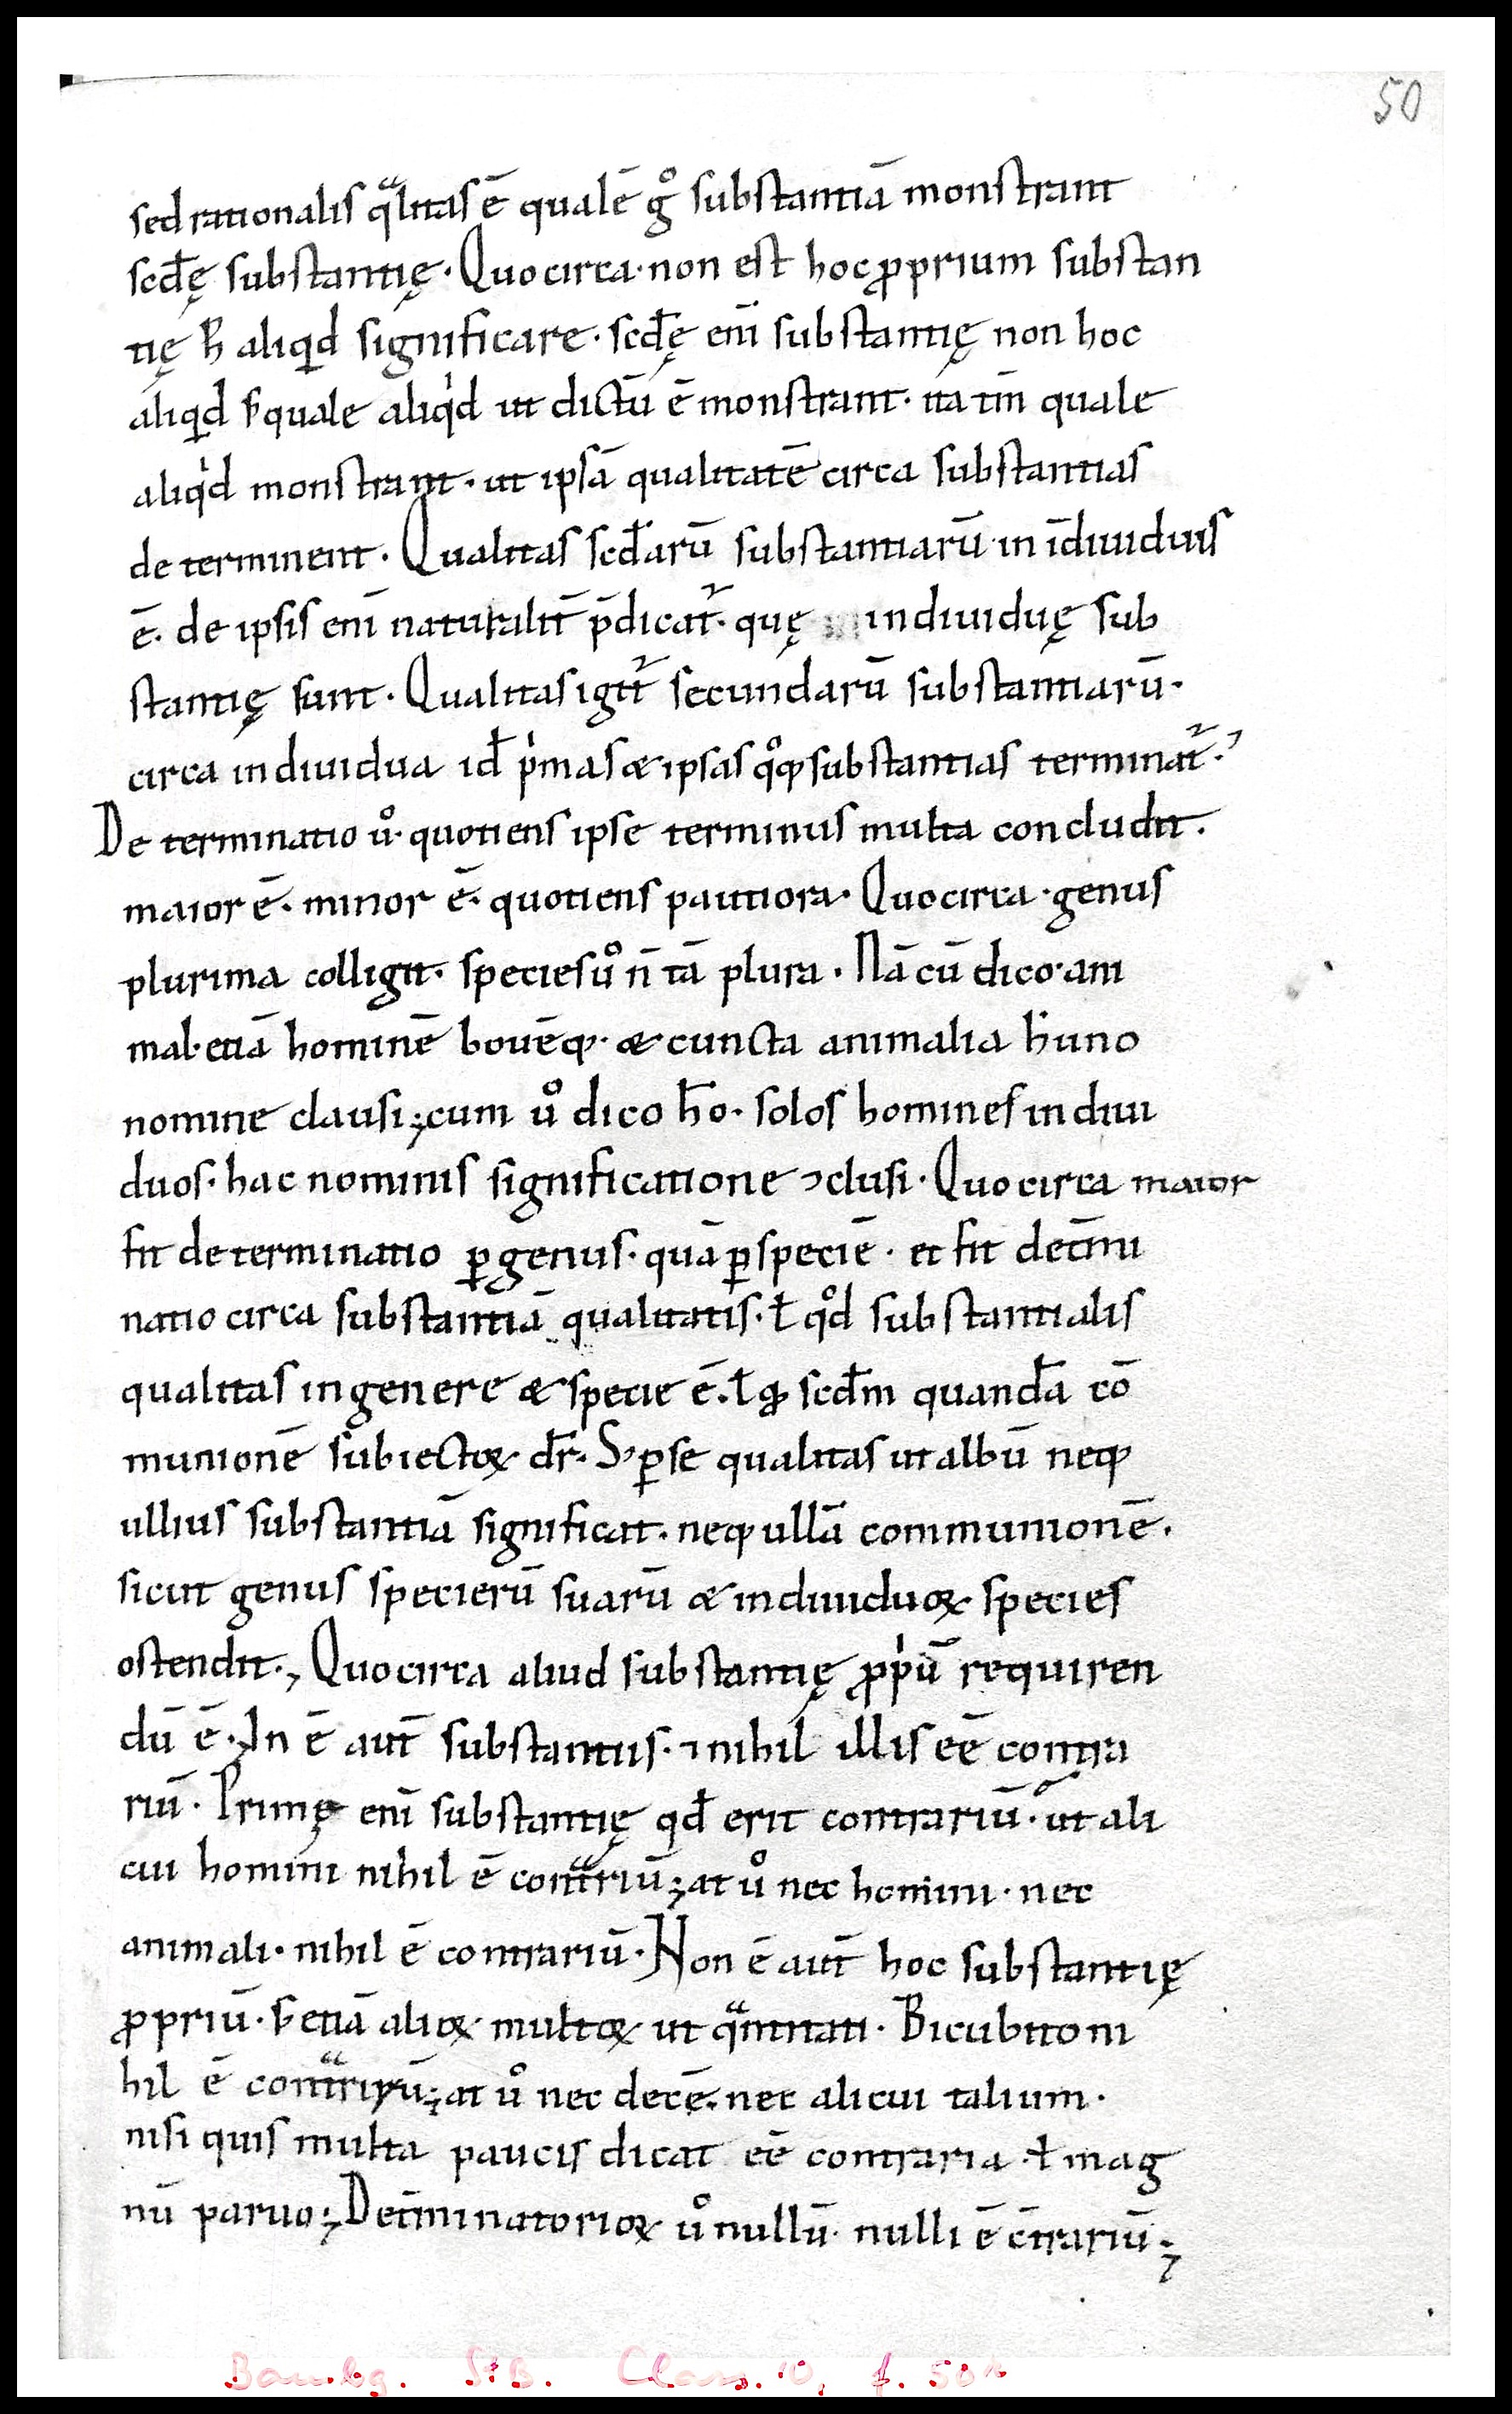 50
sed rationalis qͣlitas ē qualē gͦ substantiā monstrant
scd̄ę substantię. Quocirca. non est hoc ꝓprium substan
tię h̄ aliqͥd significare. scd̄ę enī substantię non hoc
aliqͥd s; quale aliqͥd ut dictū ē monstrant. ita tm̄ quale
aliqͥd monstrant. ut ipsā qualitatē circa substantias
determinent. Qualitas scd̄arū substantiarū in īdiuiduis
ē. de ipsis enī naturalit̄ p̄dicat᷑. quę indiuiduę sub
stantię sunt. Qualitas igit᷑ secundarū substantiarū.
circa indiuidua id̄ pͥmas & ipsas qͦq; substantias terminat᷑.
Determinatio uͦ. quotiens ipse terminus multa concludit.
maior ē. minor ē. quotiens pautiora. Quocirca. genus
plurima colligit. species uͦ n̄ tā plura. Nā cū dico. ani
mal. etiā hominē bouēq;. & cuncta animalia hͥ uno
nomine clausi; cum uͦ dico ho̅. solos homines indiui
duos. hac nominis significatione ꝯclusi. Quocirca maior
fit determinatio ꝑ genus. quā ꝑ speciē. et fit det̄mi
natio circa substantiā qualitatis. ł qͦd substantialis
qualitas in genere & specie ē. ł q; scd̄m quand̄a cō
munionē subiectoꝝ dr̄. S; ꝑ se qualitas ut albū neq;
ullius substantiā significat. neq; ullā communionē.
sicut genus specierū suarū & indiuiduoꝝ species
ostendit; Quocirca aliud substantię ꝓpͥū requiren
dū ē. In ē aut̄ substantiis. ⁊ nihil illis eē contra
riū. Primę enī substantię qd̄ erit contrariū. ut ali
cui homini nihil ē contͣriū; at uͦ nec homini. nec
animali. nihil ē contrariū. Non ē aut̄ hoc substantię
ꝓpriū. s; etiā alioꝝ multoꝝ ut qͣntitati. Bicubito ni
hil ē contͣriū; at uͦ nec decē. nec alicui talium.
nisi quis multa paucis dicat eē contraria. ł mag
nū paruo; Det̄minatorioꝝ uͦ nullū. nulli ē c̄trariū;
Bambg. StB. Class. 10, f. 50r